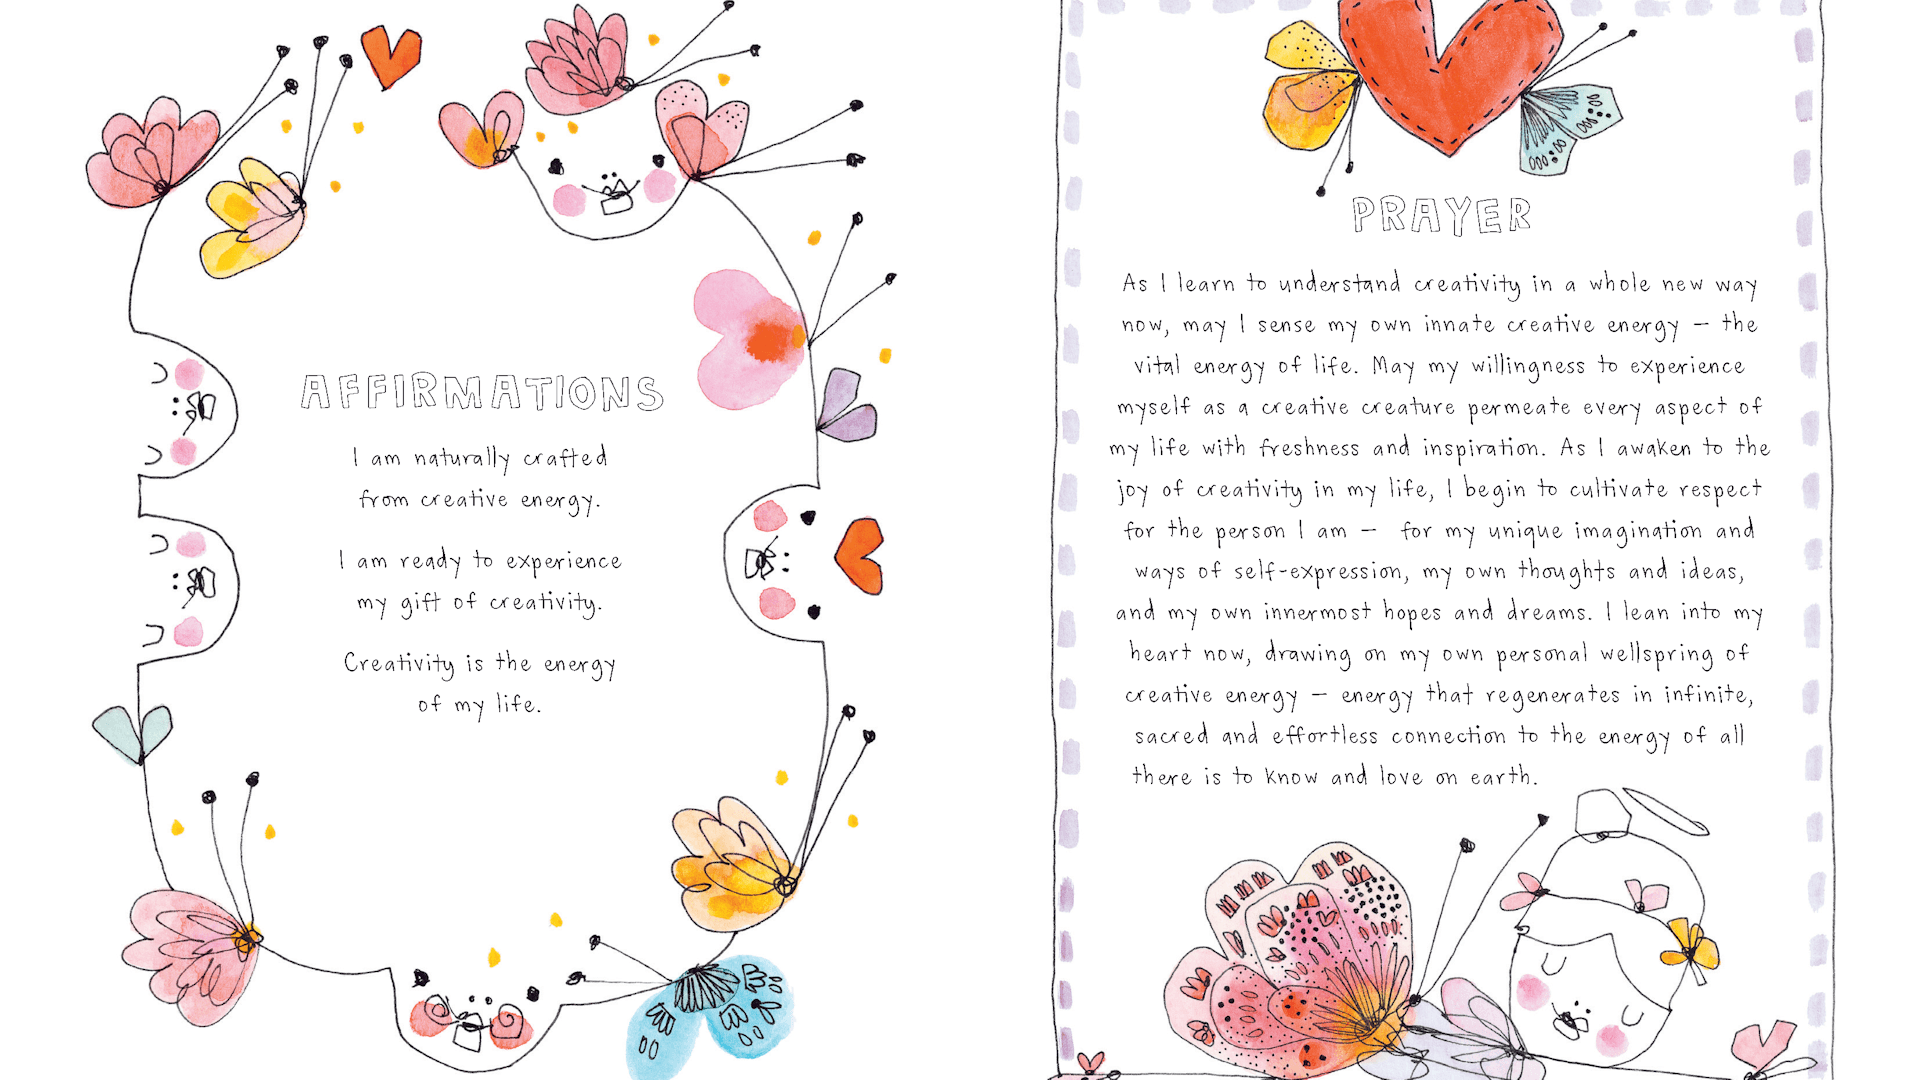 AFFIRMATIONS
I am naturally crafted
from creative energy.
I am ready to experience
my gift of creativity.
Creativity is the energy
of my life.
PRAYER
As I learn to understand creativity in a whole new way
now, may I sense my own innate creative energy – the
vital energy of life. May my willingness to experience
myself as a creative creature permeate every aspect of
my life with freshness and inspiration. As I awaken to the
joy of creativity in my life, I begin to cultivate respect
for the person I am – for my unique imagination and
ways of self-expression, my own thoughts and ideas,
and my own innermost hopes and dreams. I lean into my
heart now, drawing on my own personal wellspring of
creative energy – energy that regenerates in infinite,
sacred and effortless connection to the energy of all
there is to know and love on earth.